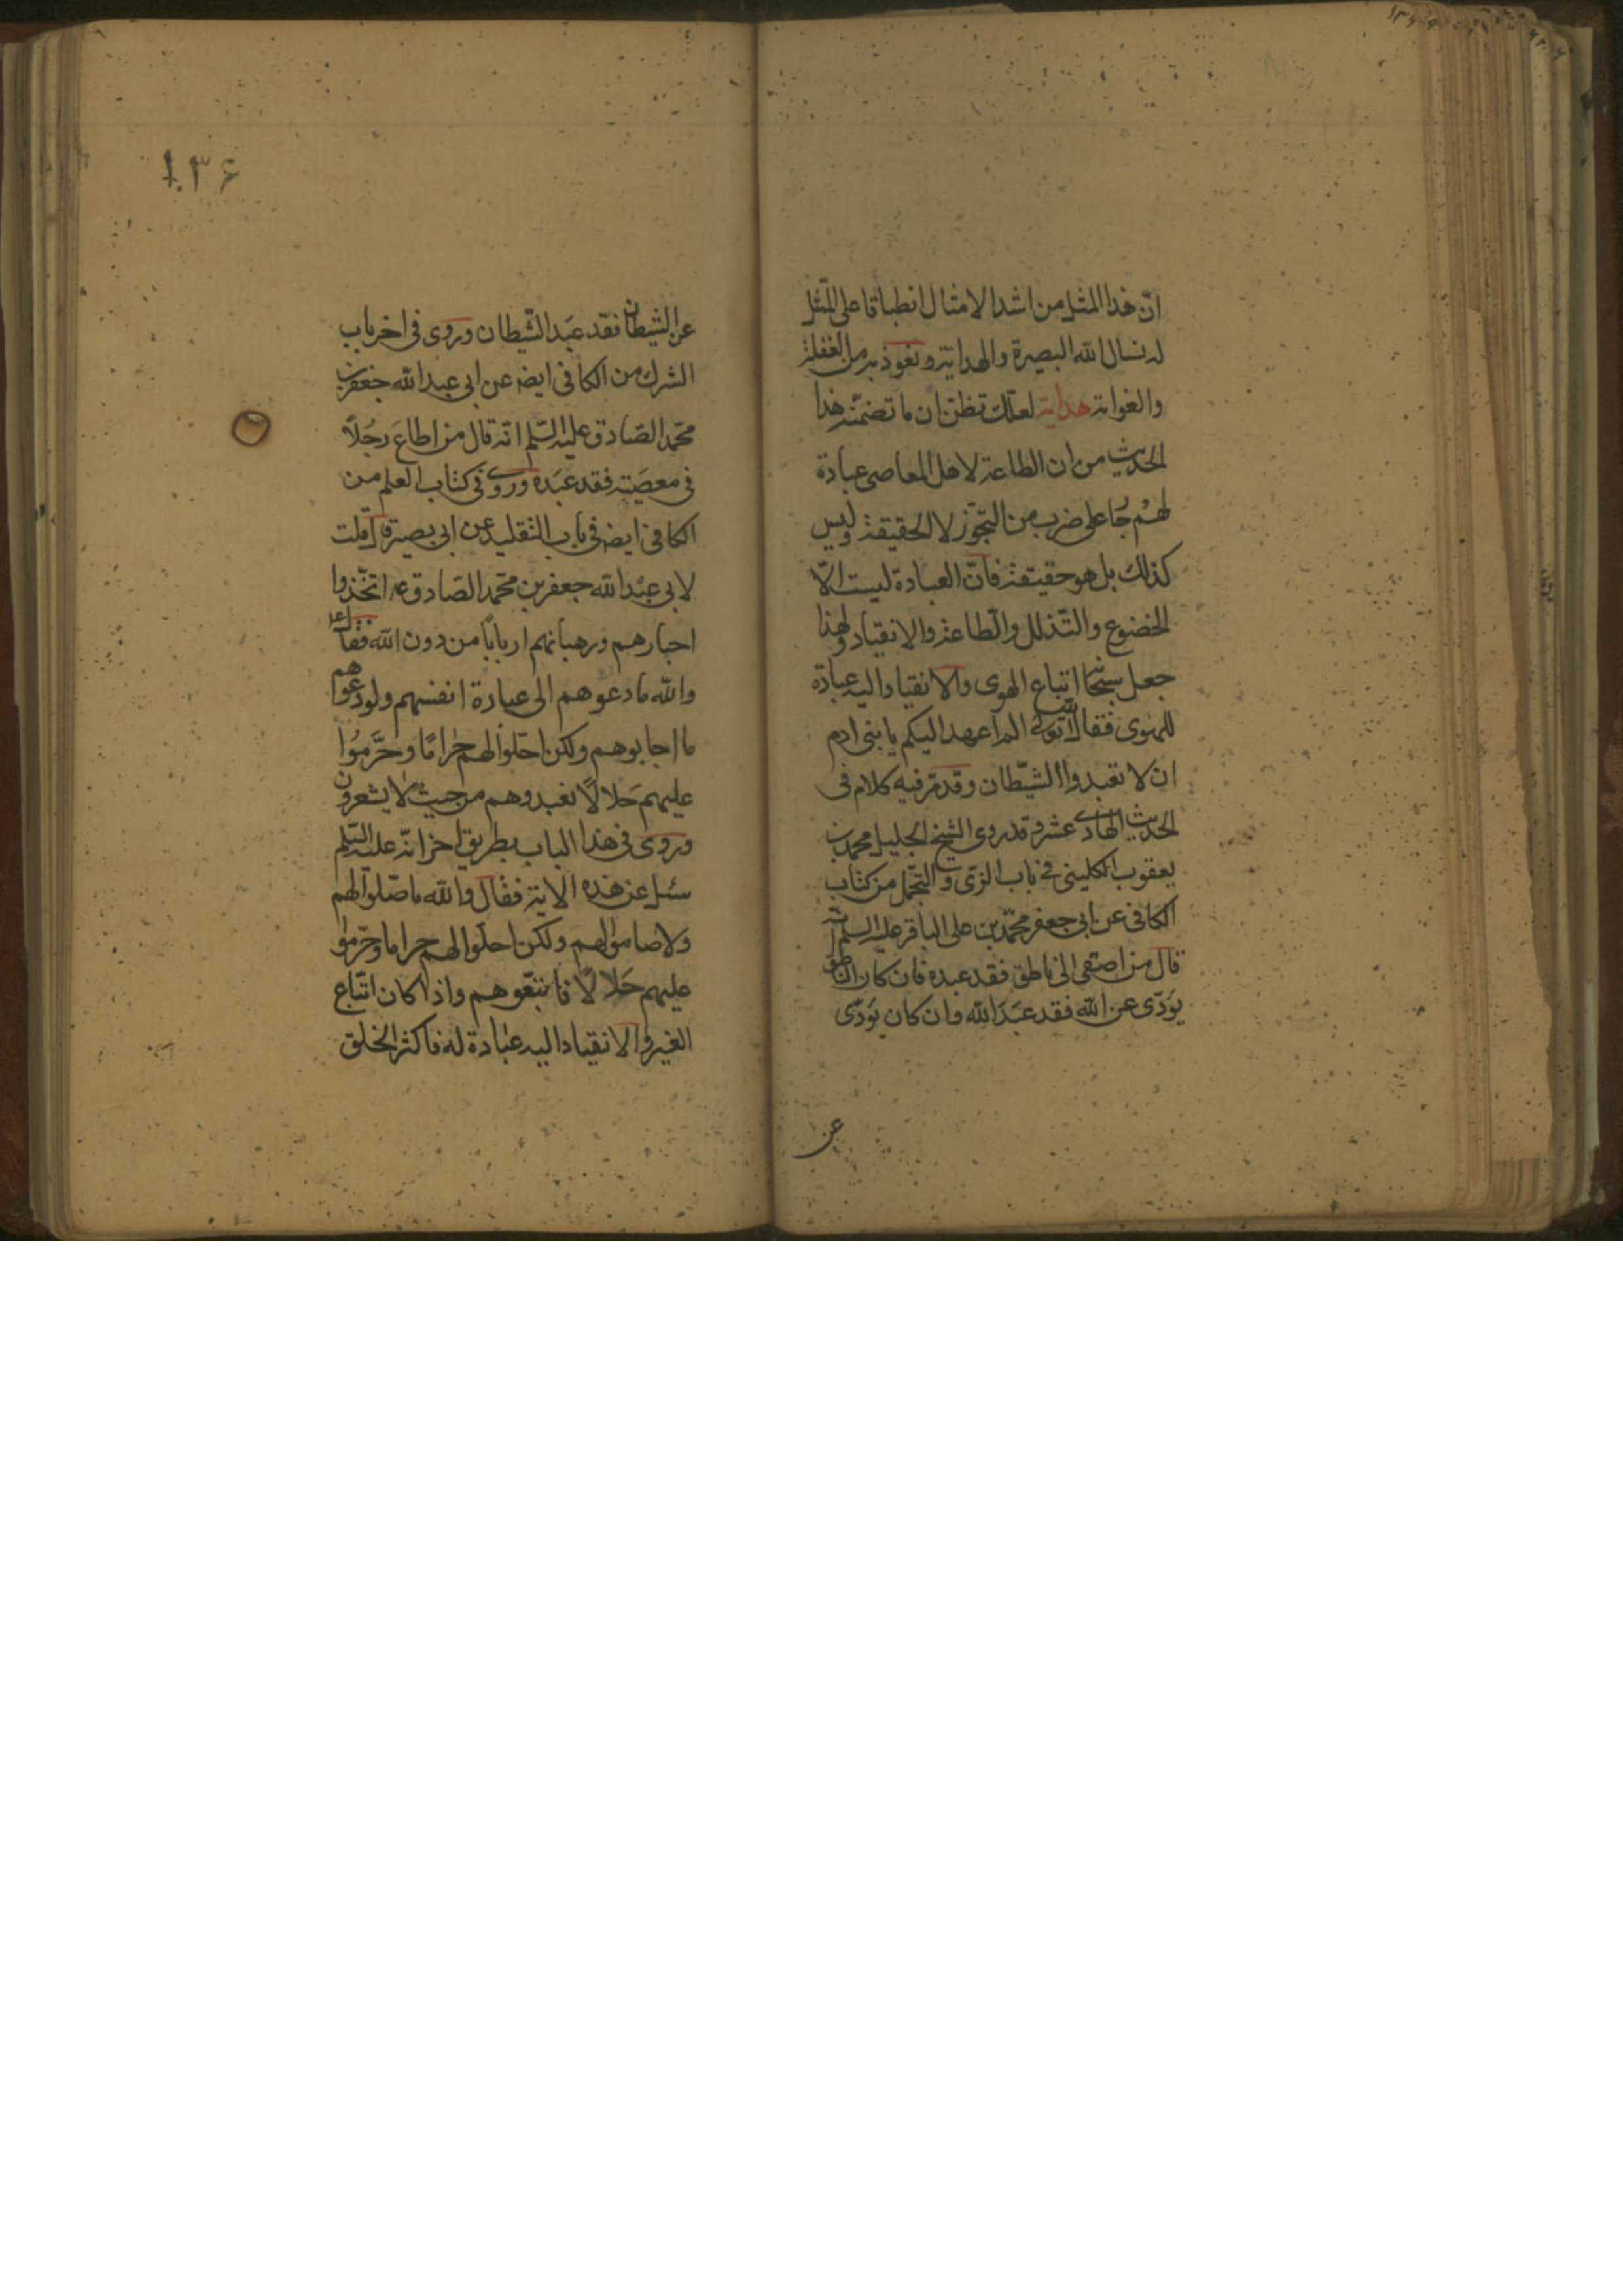 انّ هذا المثل من اشد الامثال انطباقا على الممثل
له نسال الله البصيرة والهداية ونعوذ به من الغفلة
والغواية هداية لعلك تظن ان ما تضمنه هذا
الحديث من ان الطاعة لاهل المعاصي عبادة
لهم جا على ضرب من التجوّز لا الحقيقة وليس
كذلك بل هو حقيقة فانّ العبادة ليست الّا
الخضوع والتذلل والطاعة والانقياد ولهذا
جعل سبحانه اتباع الهوى والانقياد اليه عبادة
للهوى فقال الم اعهد اليكم يا بني ادم
ان لا تعبدوا الشيطان وقد مرّ فيه كلام في
الحديث الحادي عشر وقد روى الشيخ الجليل محمد بن
يعقوب الكليني في باب الزي والتجمّل من كتاب
الكافي عن ابي جعفر محمّد بن علي الباقر عليه السلم انّه
قال من اصغى الى ناطق فقد عبده فان كان الناطق
يؤدّى عن الله فقد عبَدَ الله وان كان يؤدّى
عن
١٣۶
عن الشيطان فقد عبَد الشّيطان وروى في اخر باب
الشرك من الكافي ايضا عن ابي عبد الله جعفر بن
محمّد الصّادق عليه السّلم انّه قال من اطاعَ رجُلاً
في معصَيته فقد عبَده وروى في كتاب العلم من
الكافي ايضا في باب التقليد عن ابي بصير قال قلت
لابي عبْد الله جعفر بن محمّد الصّادق ع اتّخذوا
احبارهم ورهبانهم ارباباً من دون الله فقال ع
والله ما دعوهم الى عبادة انفسهم ولو دعوهم
ما اجابوهم ولكن احلّوا لهم حراماً وحَرَّمُوا
عليهم حَلالاً فعبدوهم من حيث لا يشعرون
وروى في هذا الباب بطريق اخر انّه عليه السّلم
سئل عن هذه الاية فقال والله ما صلّوا لهم
ولا صاموا لهم ولكن احلّوا لهم حراما وحرّموا
عليهم حَلالاً فاتبّعوهم واذا كان اتّباع
الغير والانقياد اليه عبادة له فاكثر الخلق